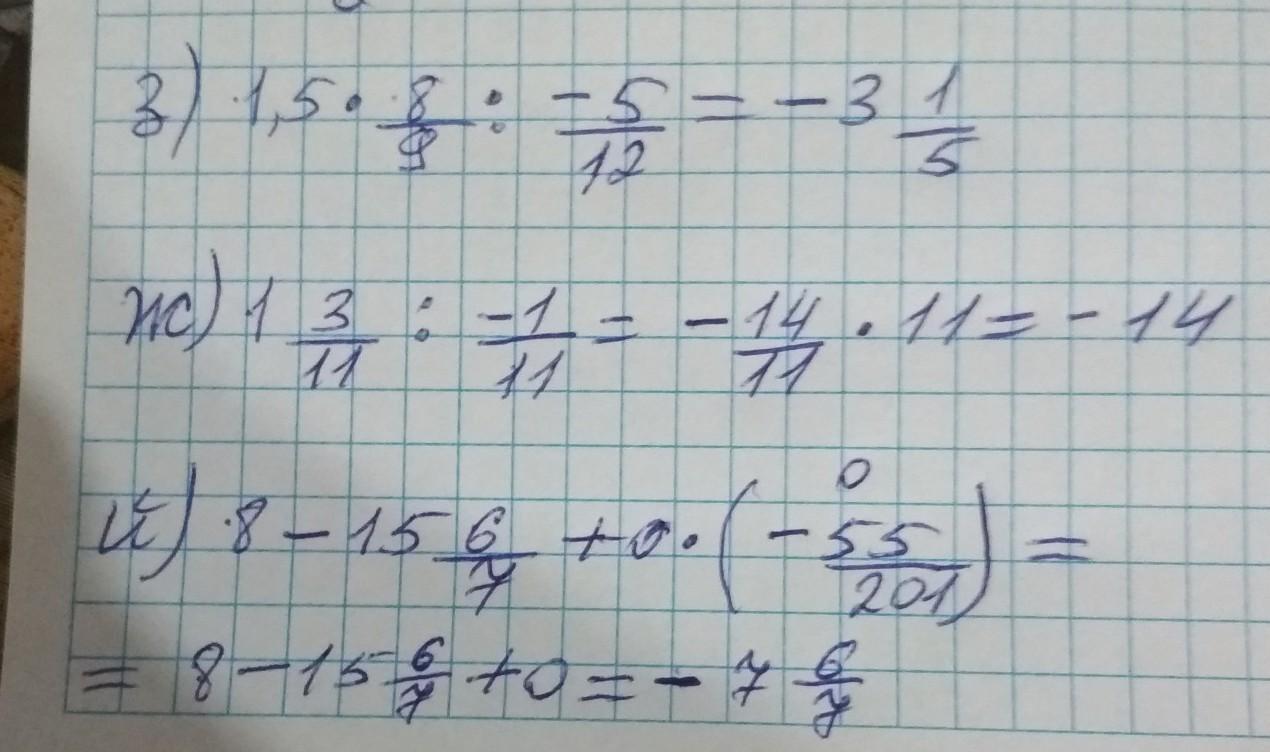 з) 1,5 · 8/9 : -5/12 = -3 1/5
ж) 1 3/11 : -1/11 = -14/11 · 11 = -14
0
й) 8 - 15 6/7 + 0 · (-55/201) =
= 8 - 15 6/7 + 0 = -7 6/7